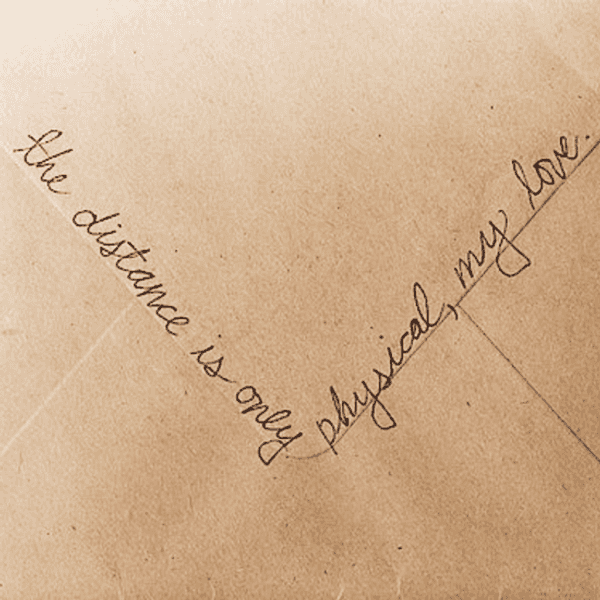 the distance is only
physical, my love.